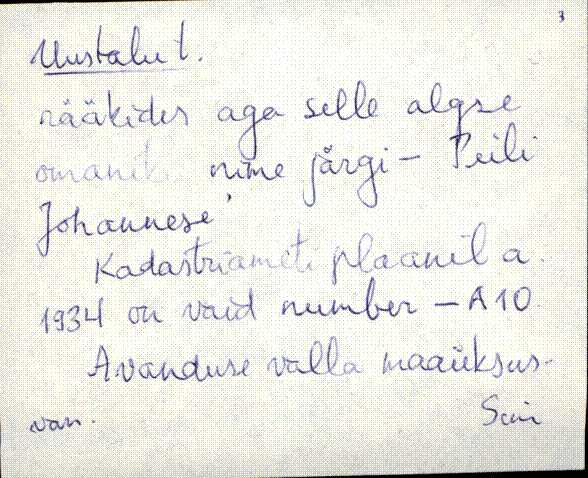 3
Uustalu t.
rääkides aga selle algse
omaniku nime järgi – Peili
Johannese
Kadastriameti plaanil a.
1934 on vaid number – A 10.
Avanduse valla maaüksus-
van.